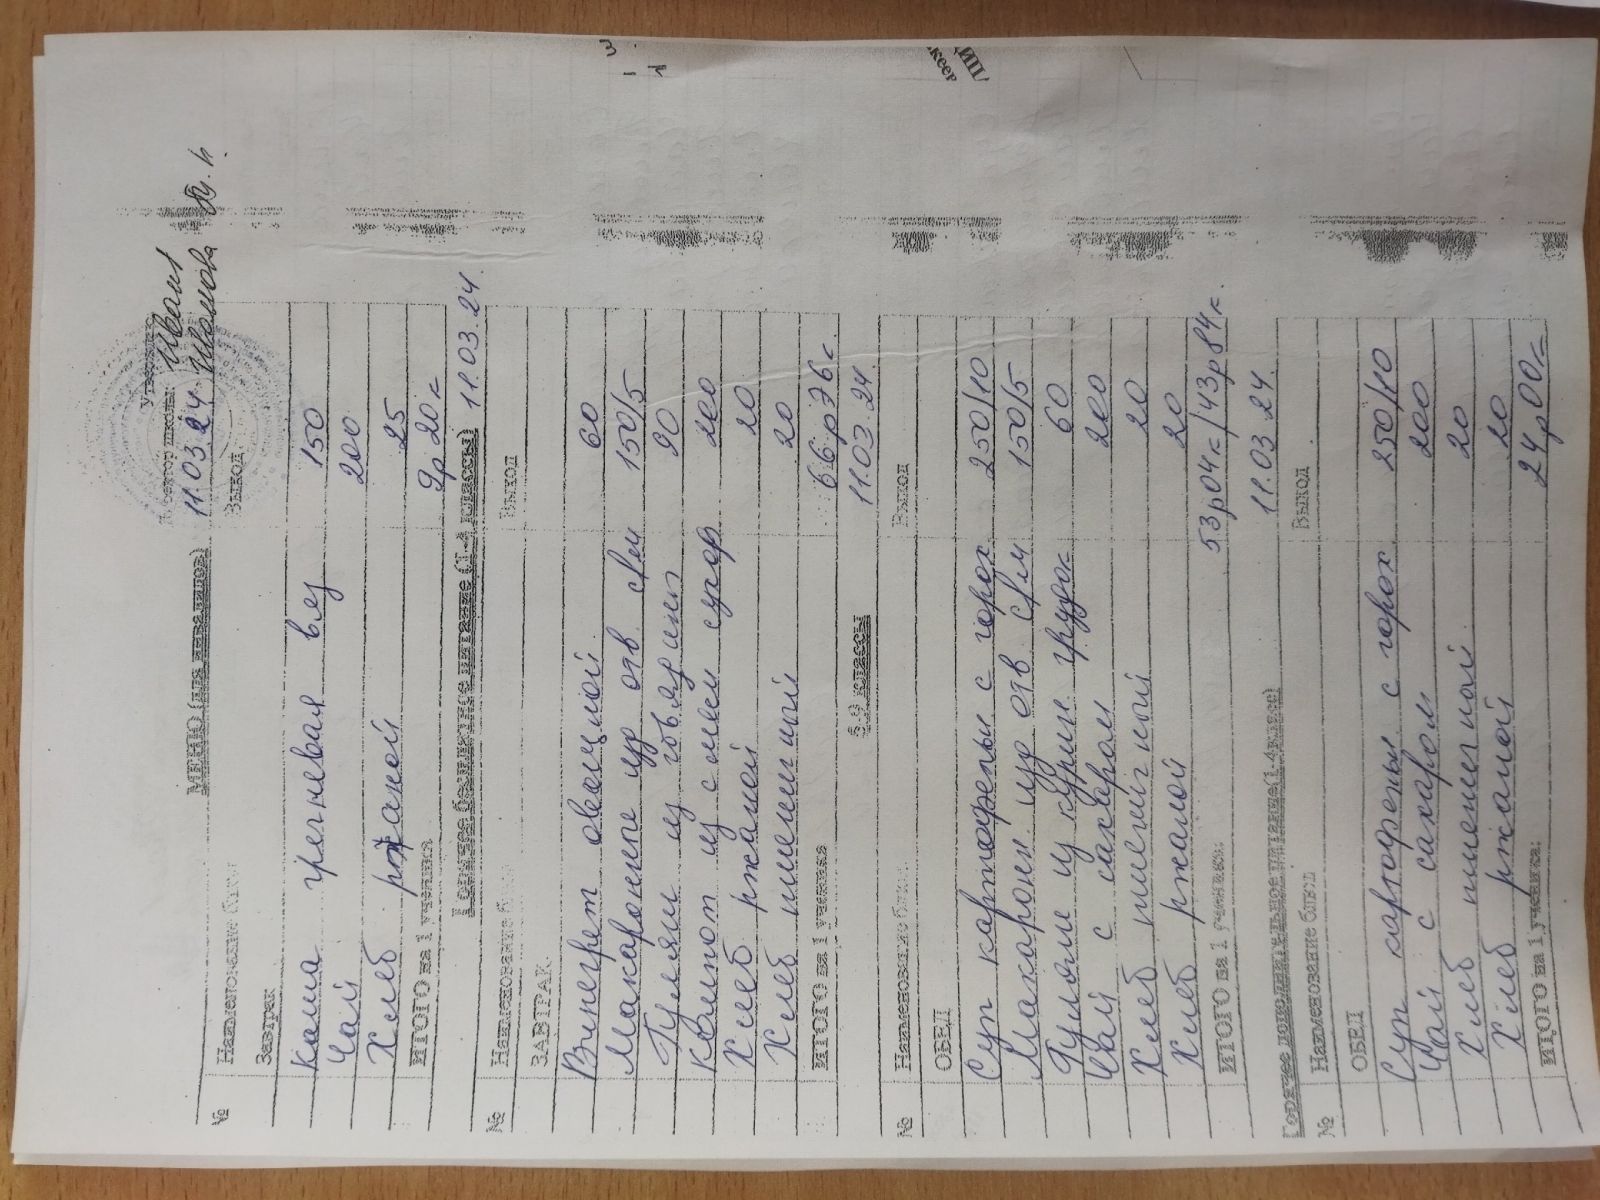 Утверждаю
Директор школы
МЕНЮ (для инвалидов) 11.03.24
№ Наименование блюд Выход
Завтрак
Каша гречневая вяз 150
Чай 200
Хлеб ржаной 25
ИТОГО на 1 ученика 9р20=
Горячее бесплатное питание (1-4 классы) 11.03.24.
№ Наименование Выход
ЗАВТРАК
Винегрет овощной 60
Макаронные изд отв с/м 150/5
Гуляш из говядины 90
Компот из смеси сухоф 200
Хлеб ржаной 20
Хлеб пшеничный 20
ИТОГО на 1 ученика 66р76к
5-9 классы 11.03.24.
№ Наименование блюд Выход
ОБЕД
Суп картофельн с горох 250/10
Макарон изд отв с/м 150/5
Гуляш из курин грудок 60
Чай с сахаром 200
Хлеб пшеничной 20
Хлеб ржаной 20
ИТОГО на 1 ученика: 53р04к/43р84к.
Горячее дополнительное питание(1-4класс) 11.03.24.
№ Наименование блюд Выход
ОБЕД
Суп картофельн с горох 250/10
Чай с сахаром 200
Хлеб пшеничной 20
Хлеб ржаной 20
ИТОГО на 1 ученика: 24р00=